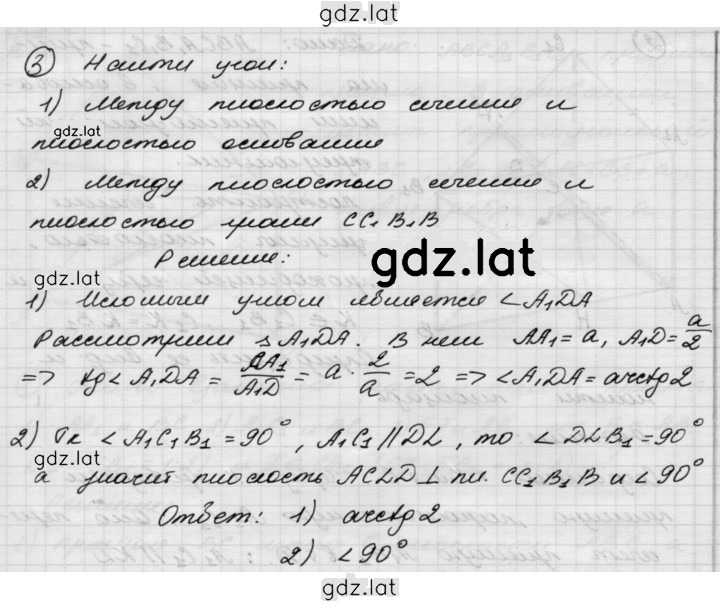 gdz.lat
3 Найти угол:
1) Между плоскостью сечения и
gdz.lat
плоскостью основания
2) Между плоскостью сечения и
плоскостью грани CC₁B₁B
gdz.lat
Решение:
gdz.lat
1) Искомым углом является ∠A₁DA
Рассмотрим △A₁DA. В нем AA₁ = a, A₁D = a/2
=> tg∠A₁DA = AA₁/A₁D = a · 2/a = 2 => ∠A₁DA = arctg 2
2) Тк ∠A₁C₁B₁ = 90°, A₁C₁ // DL, то ∠DLB₁ = 90°
gdz.lat
а значит плоскость ACLD ⊥ пл. CC₁B₁B и ∠90°
Ответ: 1) arctg 2
gdz.lat
2) ∠90°
gdz.lat